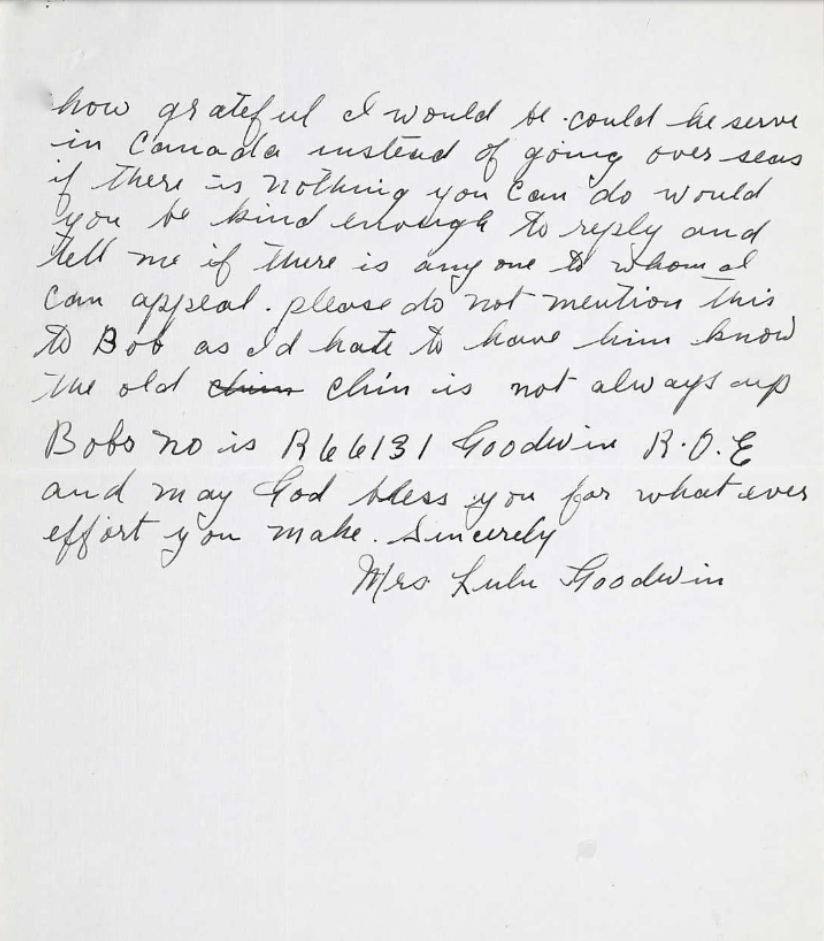 how grateful I would be could he serve
in Canada instead of going over seas
if there is nothing you can do would
you be kind enough to reply and
tell me if there is any one to whom I
can appeal. please do not mention this
to Bob as I'd hate to have him know
the old chin chin is not always up
Bobs no is R66131 Goodwin R.O.E
and may God bless you for what ever
effort you make. Sincerely
Mrs Lulu Goodwin